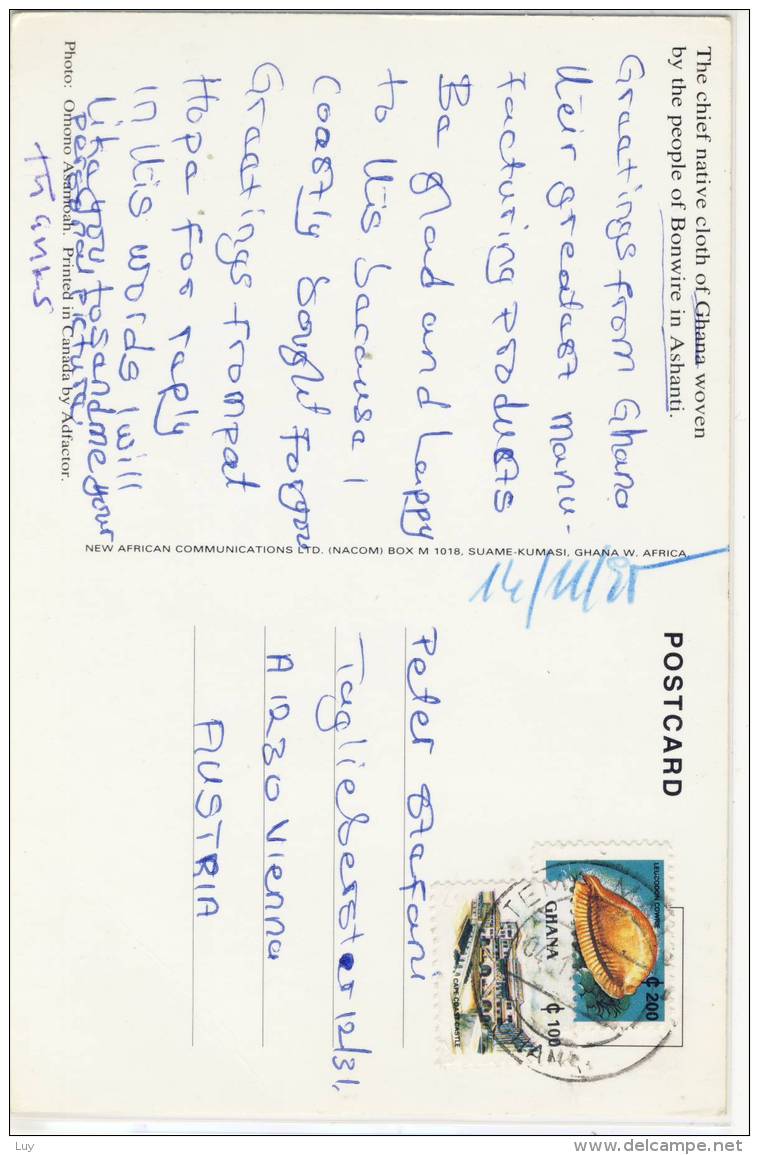 The chief native cloth of Ghana woven
by the people of Bonwire in Ashanti.
Greatings from Ghana
their greatest manu-
facturing products
Be glad and happy
to this because I
coastly bought for you
Greatings from pat
Hope for reply
in this words, I will
like you to send me your
personal picture
thanks
Photo: Omono Asamoah. Printed in Canada by Adfactor.
NEW AFRICAN COMMUNICATIONS LTD. (NACOM) BOX M 1018, SUAME-KUMASI, GHANA W. AFRICA.
14/11/95
POSTCARD
Peter Stefani
Taglieberstr 12/31,
A 1230 Vienna
AUSTRIA
LEUCODON COWRIE
₵ 200
GHANA
₵ 100
CAPE COAST CASTLE
TEMA
Luy
www.delcampe.net